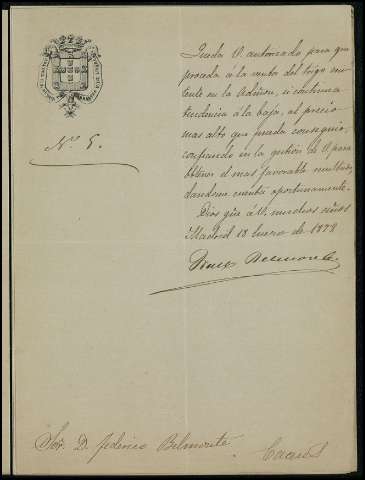 Nº 5.
Queda V. autorizado para que
proceda á la venta del trigo exis
tente en la Sedición, si continua
tendencia á la baja, al precio
mas alto que pueda conseguir,
confiando en la gestion de V. para
obtener el mas favorable resultado,
dandome cuenta oportunamente.
Dios gûe á V. muchos años
Madrid 18 Enero de 1879
Belmonte
Sor. D. Federico Belmonte.
Caceres